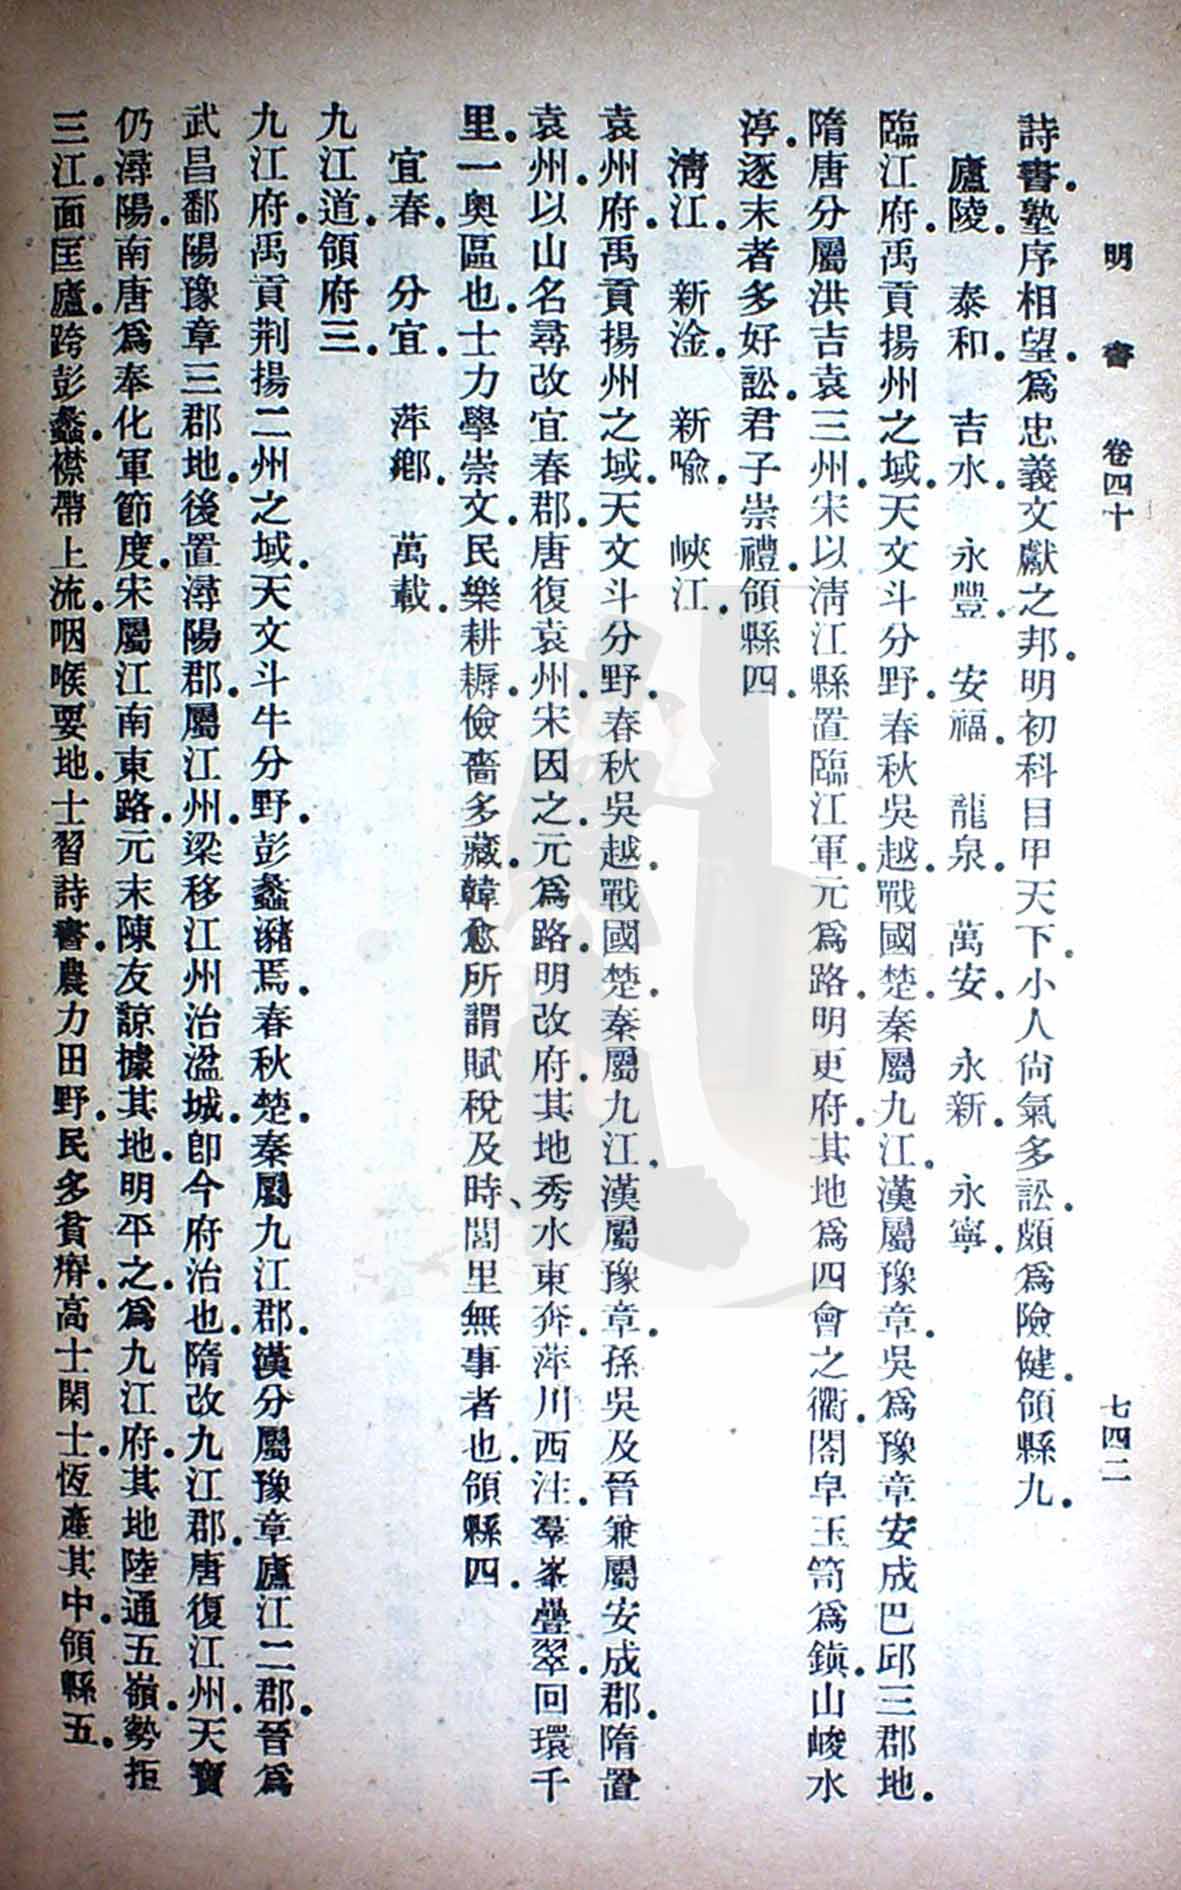 明書 卷四十 七四二
詩書.塾序相望.爲忠義文獻之邦.明初科目甲天下.小人尙氣多訟.頗爲險健.領縣九.
廬陵. 泰和. 吉水. 永豐. 安福. 龍泉. 萬安. 永新. 永寧.
臨江府.禹貢揚州之域.天文斗分野.春秋吳越.戰國楚.秦屬九江.漢屬豫章.吳爲豫章安成巴邱三郡地.
隋唐分屬洪吉袁三州.宋以淸江縣置臨江軍.元爲路.明更府.其地爲四會之衢.閤皁玉笥爲鎭.山峻水
淳.逐末者多好訟.君子崇禮.領縣四.
淸江. 新淦. 新喩. 峽江.
袁州府.禹貢揚州之域.天文斗分野.春秋吳越.戰國楚.秦屬九江.漢屬豫章.孫吳及晉兼屬安成郡.隋置
袁州.以山名尋改宜春郡.唐復袁州.宋因之.元爲路.明改府.其地秀水東奔.萍川西注.羣峯疊翠.回環千
里.一奧區也.士力學崇文.民樂耕耨.儉嗇多藏.韓愈所謂賦稅及時、閭里無事者也.領縣四.
宜春. 分宜. 萍鄕. 萬載.
九江道.領府三.
九江府.禹貢荆揚二州之域.天文斗牛分野.彭蠡瀦焉.春秋楚.秦屬九江郡.漢分屬豫章廬江二郡.晉爲
武昌鄱陽豫章三郡地.後置潯陽郡.屬江州.梁移江州治湓城.卽今府治也.隋改九江郡.唐復江州.天寶
仍潯陽.南唐爲奉化軍節度.宋屬江南東路.元末陳友諒據其地.明平之.爲九江府.其地陸通五嶺.勢拒
三江.面匡廬.跨彭蠡.襟帶上流.咽喉要地.士習詩書.農力田野.民多貧瘠.高士閑士.恆產其中.領縣五.